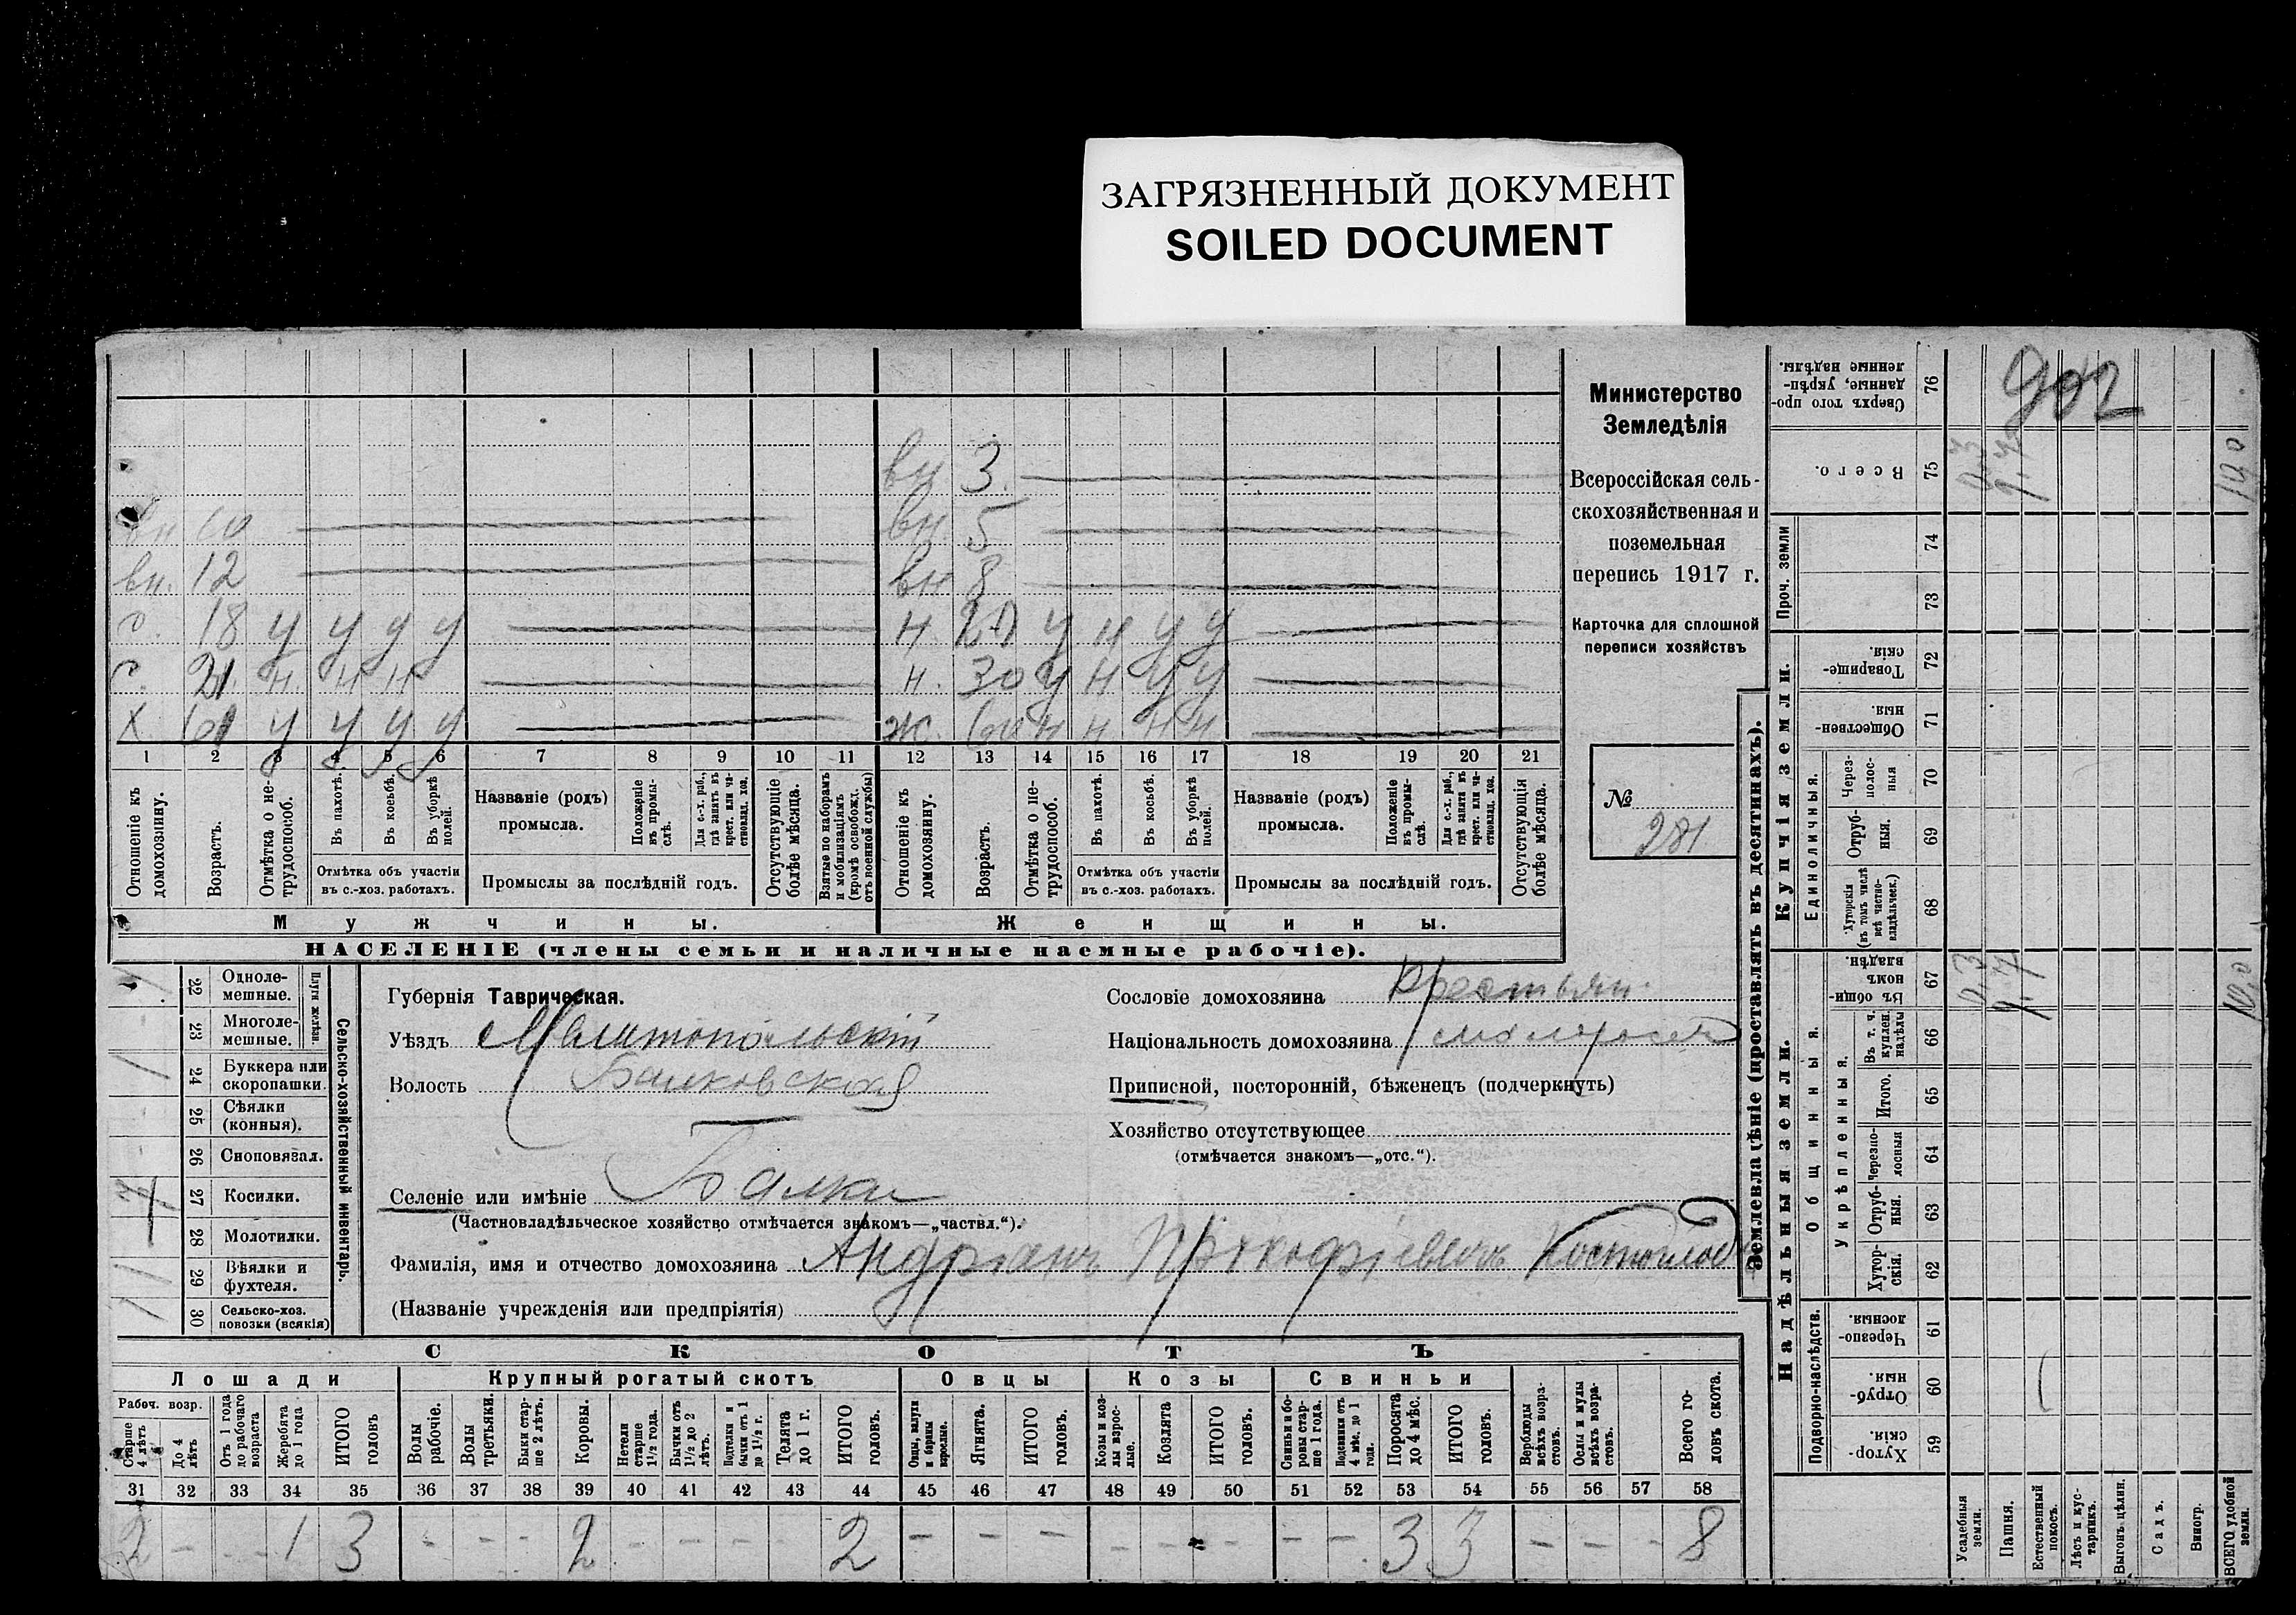 ЗАГРЯЗНЕННЫЙ ДОКУМЕНТ
SOILED DOCUMENT
вн 3.
вн 10
вн. 5
вн. 12
вн 8
с. 18 у у у у
н. 20 у н у у
с. 21. н. н н
н. 30 у н у у
х. 61 у у у у
ж. 60 н н н н
1 2 3 4 5 6 7 8 9 10 11 12 13 14 15 16 17 18 19 20 21
Отношеніе къ домохозяину.
Возрастъ.
Отмѣтка о не-трудоспособ.
Въ пахотѣ.
Въ косьбѣ.
Въ уборкѣ полей.
Отмѣтка объ участіи въ с.-хоз. работахъ.
Названіе (родъ) промысла.
Положеніе въ промы-слѣ.
Для с.-х. раб., гдѣ занятъ въ крест. или ча-стновлад. хоз.
Промыслы за послѣдній годъ.
Отсутствующіе болѣе мѣсяца.
Взятые по наборамъ и мобилизаціямъ (кромѣ освобожд. отъ военной службы)
Отношеніе къ домохозяину.
Возрастъ.
Отмѣтка о не-трудоспособ.
Въ пахотѣ.
Въ косьбѣ.
Въ уборкѣ полей.
Отмѣтка объ участіи въ с.-хоз. работахъ.
Названіе (родъ) промысла.
Положеніе въ промы-слѣ.
Для с.-х. раб., гдѣ занята въ крест. или ча-стновлад. хоз.
Промыслы за послѣдній годъ.
Отсутствующія болѣе мѣсяца.
Мужчины.
Женщины.
НАСЕЛЕНІЕ (члены семьи и наличные наемные рабочіе).
Министерство
Земледѣлія
Всероссійская сель-
скохозяйственная и
поземельная
перепись 1917 г.
Карточка для сплошной
переписи хозяйствъ
№
281
22 Одноле-мешные.
23 Многоле-мешные.
Плуги желѣзн.
24 Буккера или скоропашки.
25 Сѣялки (конныя).
26 Сноповязал.
27 Косилки.
28 Молотилки.
29 Вѣялки и фухтеля.
30 Сельско-хоз. повозки (всякія)
Сельско-хозяйственный инвентарь.
Губернія Таврическая.
Уѣздъ Мелитопольскій
Волость Балковская
Селеніе или имѣніе Балки
(Частновладѣльческое хозяйство отмѣчается знакомъ—„частвл.“).
Фамилія, имя и отчество домохозяина Андріанъ Прокофіевичъ
(Названіе учрежденія или предпріятія)
Сословіе домохозяина крестьян.
Національность домохозяина малоросс
Приписной, посторонній, бѣженецъ (подчеркнуть)
Хозяйство отсутствующее
(отмѣчается знакомъ—„отс.“).
СКОТЪ
Лошади
Крупный рогатый скотъ
Овцы
Козы
Свиньи
Рабоч. возр.
Старше 4 лѣтъ
До 4 лѣтъ
Отъ 1 года до рабочаго возраста
Жеребята до 1 года
ИТОГО головъ
Волы рабочіе.
Волы третьяки.
Быки стар-ше 2 лѣтъ.
Коровы.
Нетели старше 1½ года.
Бычки отъ 1½ до 2 лѣтъ.
Подтелки и бычки отъ 1 до 1½ г.
Телята до 1 г.
ИТОГО головъ.
Овцы, валухи и бараны взрослые.
Ягнята.
ИТОГО головъ.
Козы и коз-лы взрос-лые.
Козлята
ИТОГО головъ.
Свиньи и бо-ровы стар-ше 1 года.
Подсвинки отъ 4 мѣс. до 1 года.
Поросята до 4 мѣс.
ИТОГО головъ.
Верблюды всѣхъ возра-стовъ.
Ослы и мулы всѣхъ возра-стовъ.
Всего го-ловъ скота.
31 32 33 34 35 36 37 38 39 40 41 42 43 44 45 46 47 48 49 50 51 52 53 54 55 56 57 58
2 - - 1 3 - - - 2 - - - - 2 - - - - - - - - 3 3 - - - 8
Землевладѣніе (проставлять въ десятинахъ).
Купчія земли.
Надѣльныя земли.
Сверхъ того про-данные, укрѣп-ленные надѣлы. 76
902
Всего. 75 0,3 9,7 10,0
Проч. земли
74
73
Товарище-скія 72
Обществен-ныя. 71
Единоличныя.
Через-полос-ныя 70
Отруб-ныя. 69
Хуторскія (въ томъ числѣ всѣ частно-владѣльческ.) 68
Въ общи-номъ владѣн. 67 0,3 9,7 10,0
Общинныя.
Укрѣпленныя.
Въ т. ч. куплен. надѣлы 66
Итого. 65
Черезпо-лосныя 64
Отруб-ныя. 63
Хутор-скія. 62
Подворно-наслѣдств.
Черезпо-лосныя. 61
Отруб-ныя. 60
Хутор-скія. 59
Усадебныя земли.
Пашня.
Естественный покосъ.
Лѣсъ и кус-тарникъ.
Выгонъ цѣлин.
Садъ.
Виногр.
ВСЕГО удобной земли.